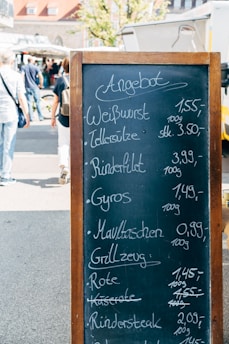 Angebot
Weißwurst 1,55,-
100g
• Tellersülze stk. 3.50,-
• Rinderfilet 3,99,-
100g
• Gyros 1,49,-
100g
• Maultaschen 0,99,-
100g
Grillzeug:
• Rote 1,45,-
100g
• Käserote 1,55,-
• Rindersteak 2,09,-
100g